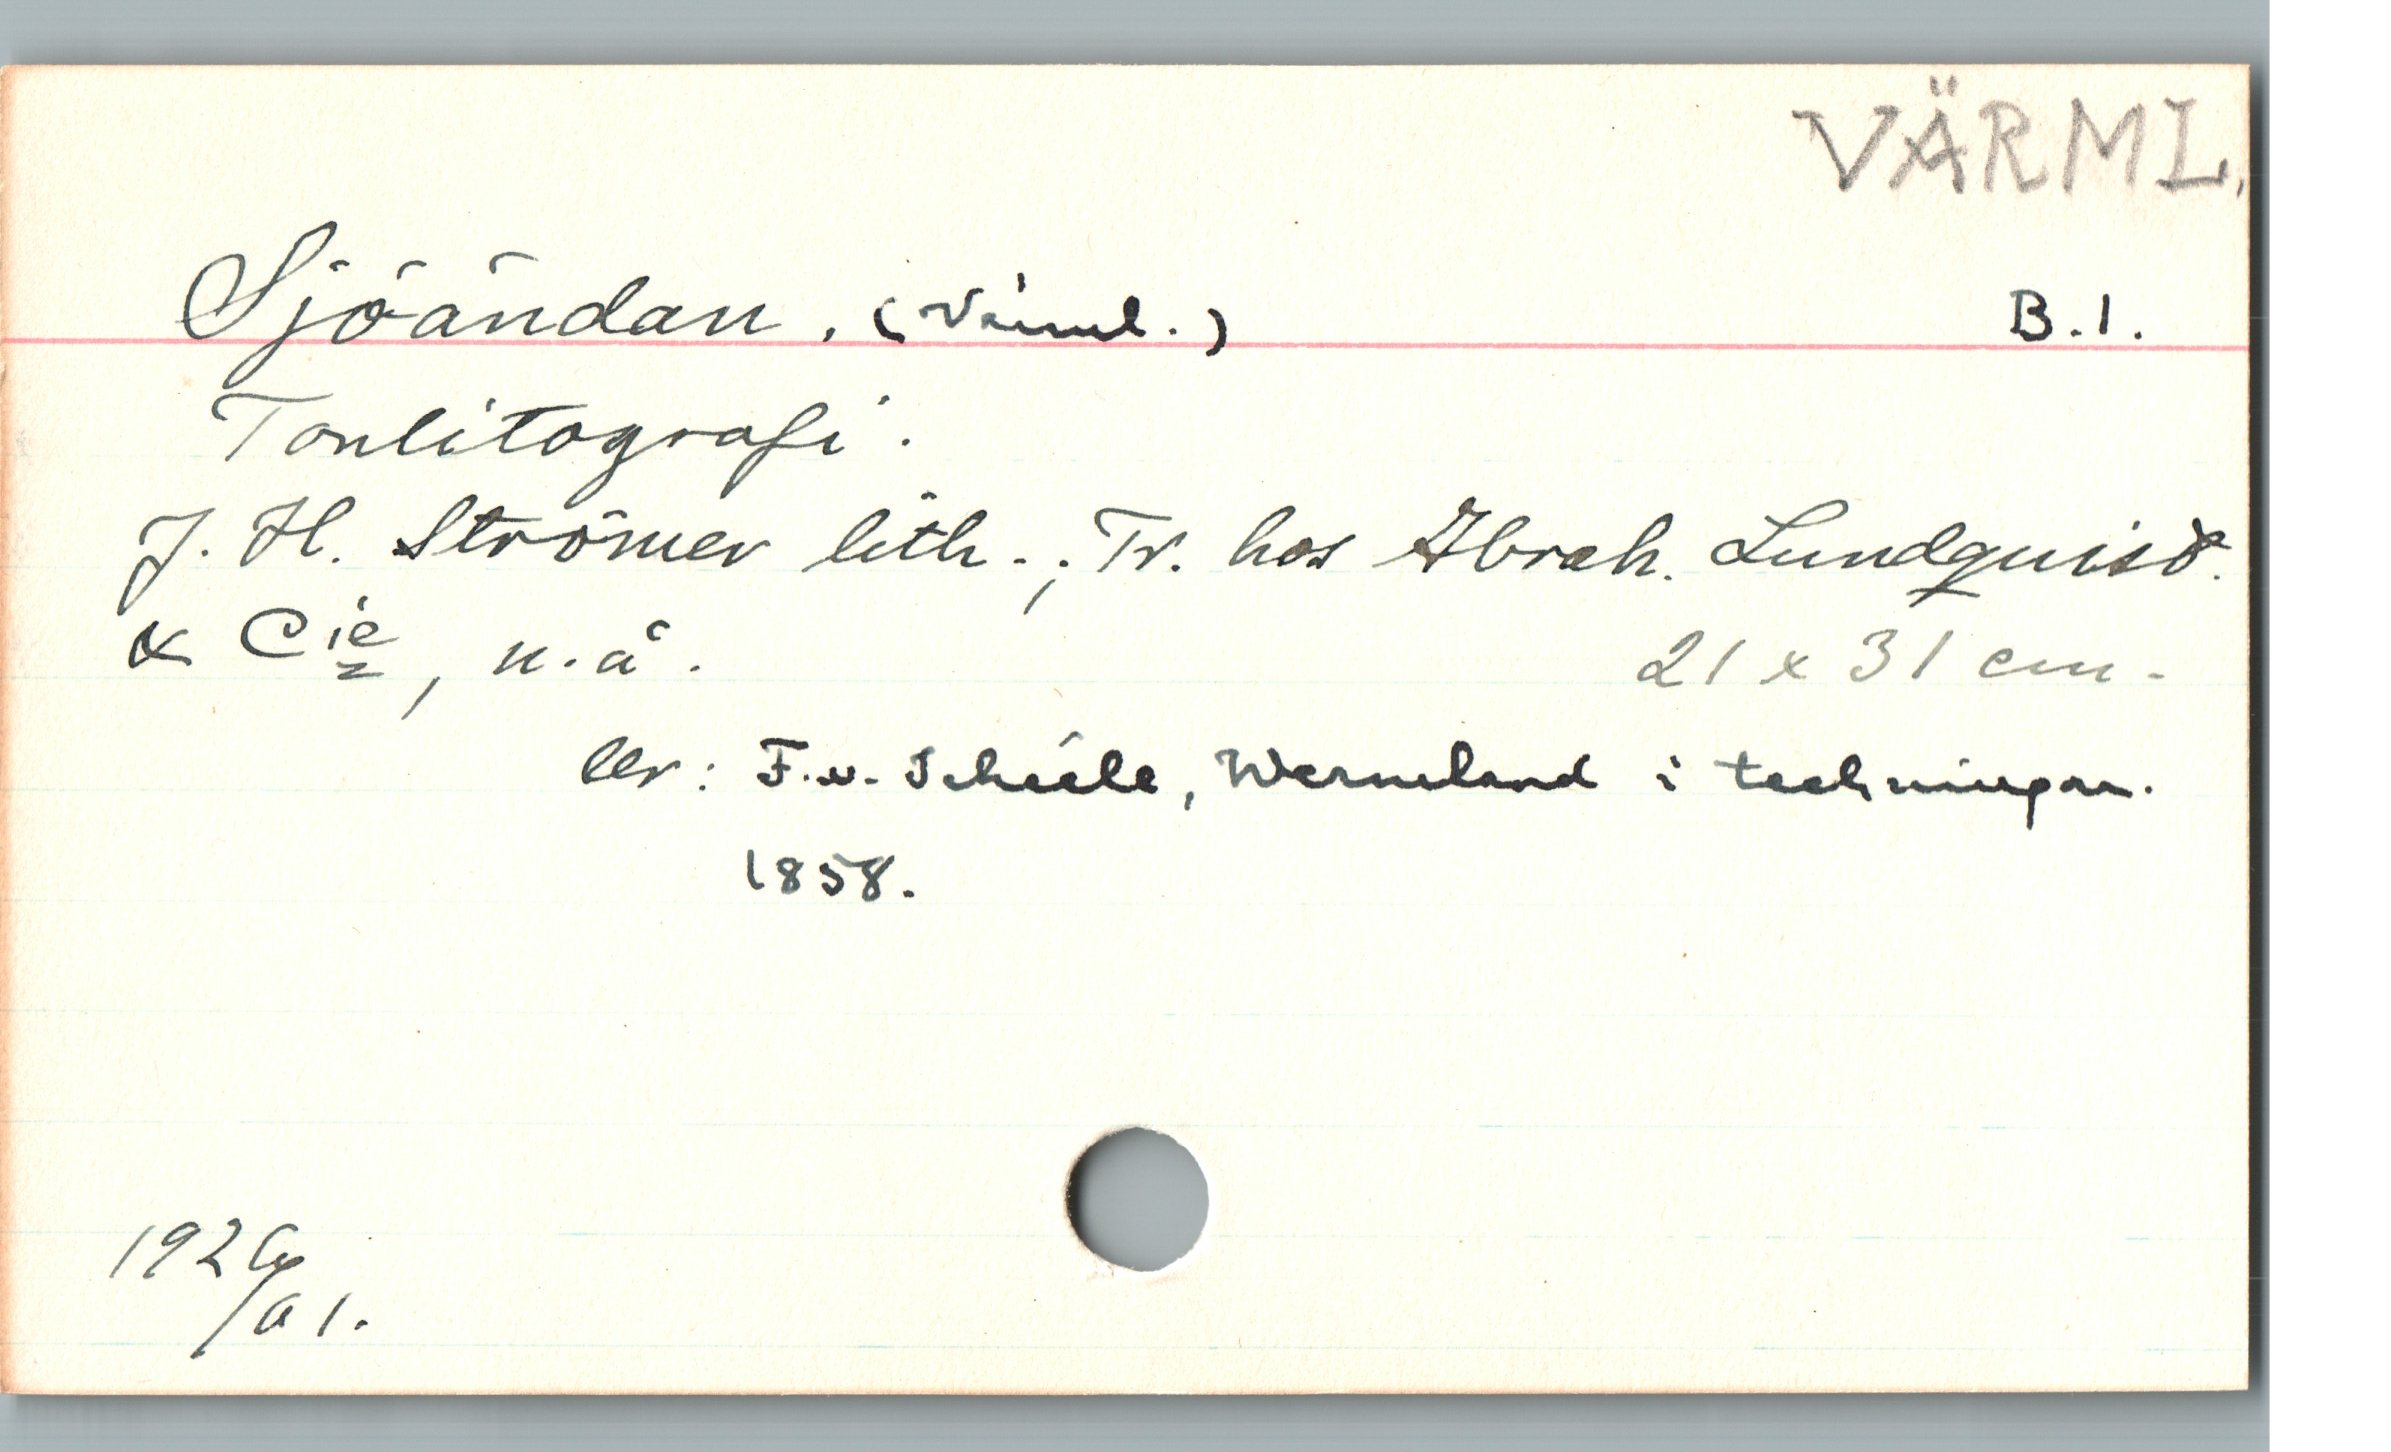 VÄRML.
Sjöändan. (Värml.) B.1.
Tonlitografi.
J. H. Strömer lith.; Tr. hos Abrah. Lundquist.
& Cie, n.å. 21 x 31 cm.
Ur: F.v. Scheele, Wermeland i teckningar.
1858.
1926
/01.